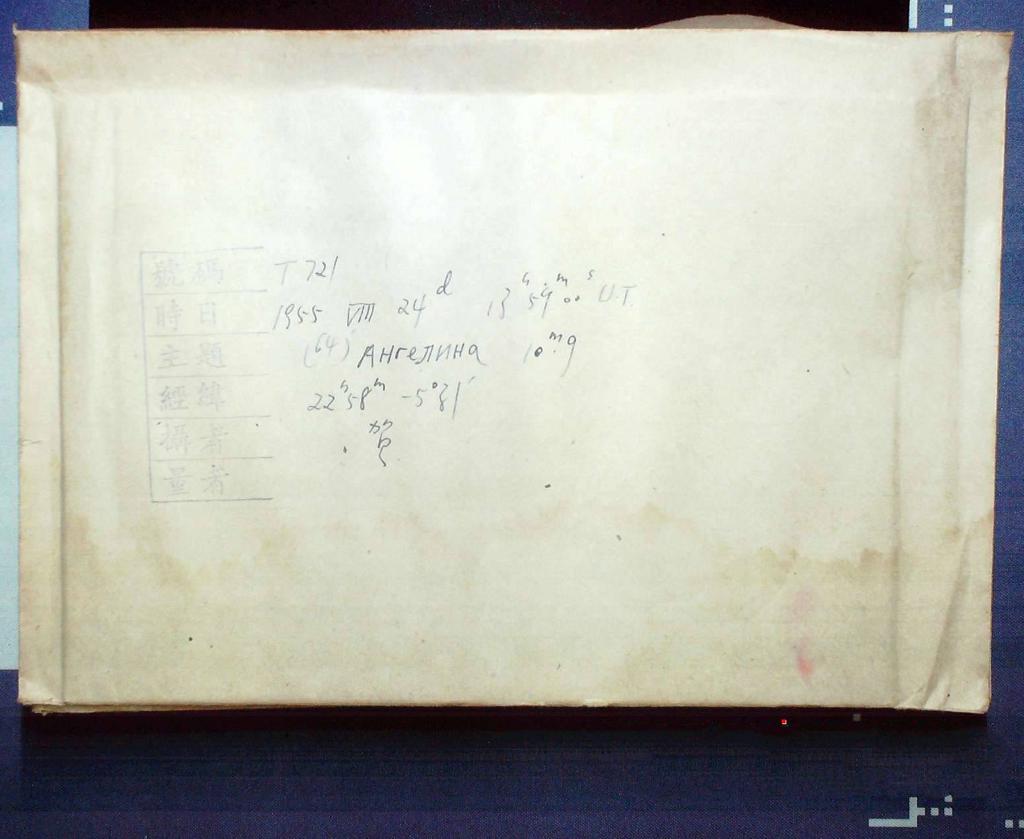 號碼 T 721
時日 1955 VIII 24ᵈ 13ʰ 59ᵐ 00ˢ U.T.
主題 (64) Ангелина 10ᵐ.9
經緯 22ʰ58ᵐ -5°31′
攝者 賀
量者